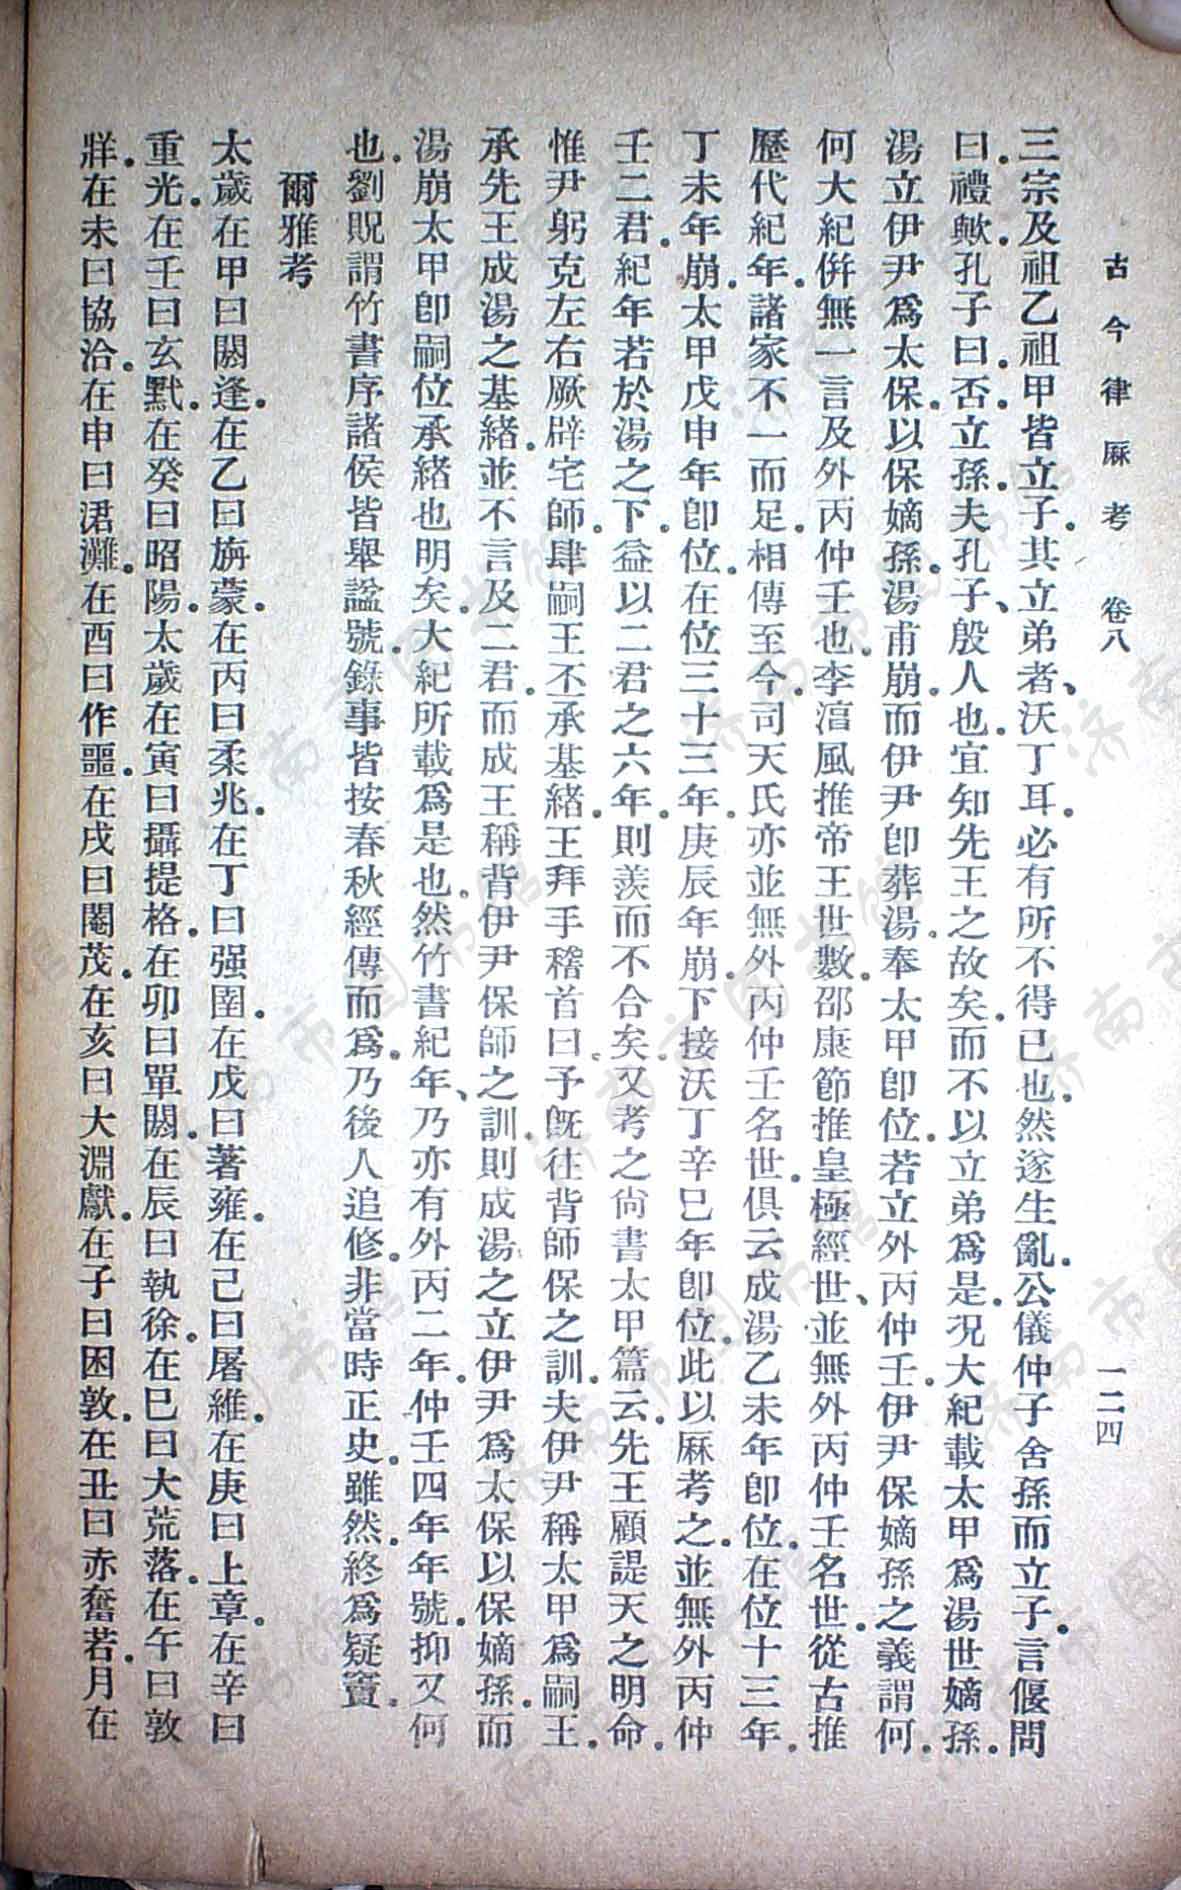 古今律厤考　卷八　一二四
三宗及祖乙祖甲皆立子。其立弟者、沃丁耳。必有所不得已也。然遂生亂。公儀仲子舍孫而立子。言偃問
曰。禮歟。孔子曰。否。立孫。夫孔子、殷人也。宜知先王之故矣。而不以立弟爲是。況大紀載太甲爲湯世嫡孫。
湯立伊尹爲太保。以保嫡孫。湯甫崩。而伊尹卽葬湯。奉太甲卽位。若立外丙仲壬。伊尹保嫡孫之義謂何。
何大紀併無一言及外丙仲壬也。李淳風推帝王世數。邵康節推皇極經世、並無外丙仲壬名世。從古推
歷代紀年。諸家不一而足。相傳至今。司天氏亦並無外丙仲壬名世。俱云成湯乙未年卽位。在位十三年。
丁未年崩。太甲戊申年卽位。在位三十三年。庚辰年崩。下接沃丁辛巳年卽位。此以厤考之。並無外丙仲
壬二君。紀年若於湯之下。益以二君之六年。則羨而不合矣。又考之尙書太甲篇云。先王顧諟天之明命。
惟尹躬克左右厥辟宅師。肆嗣王丕承基緒。王拜手稽首曰。予旣往背師保之訓。夫伊尹稱太甲爲嗣王。
承先王成湯之基緒。並不言及二君。而成王稱背伊尹保師之訓。則成湯之立伊尹爲太保以保嫡孫。而
湯崩太甲卽嗣位承緒也明矣。大紀所載爲是也。然竹書紀年、乃亦有外丙二年。仲壬四年年號。抑又何
也。劉貺謂竹書序諸侯皆舉諡號。錄事皆按春秋經傳而爲。乃後人追修。非當時正史。雖然。終爲疑竇。
爾雅考
太歲在甲曰閼逢。在乙曰旃蒙。在丙曰柔兆。在丁曰强圉。在戊曰著雍。在己曰屠維。在庚曰上章。在辛曰
重光。在壬曰玄黓。在癸曰昭陽。太歲在寅曰攝提格。在卯曰單閼。在辰曰執徐。在巳曰大荒落。在午曰敦
牂。在未曰協洽。在申曰涒灘。在酉曰作噩。在戌曰閹茂。在亥曰大淵獻。在子曰困敦。在丑曰赤奮若。月在